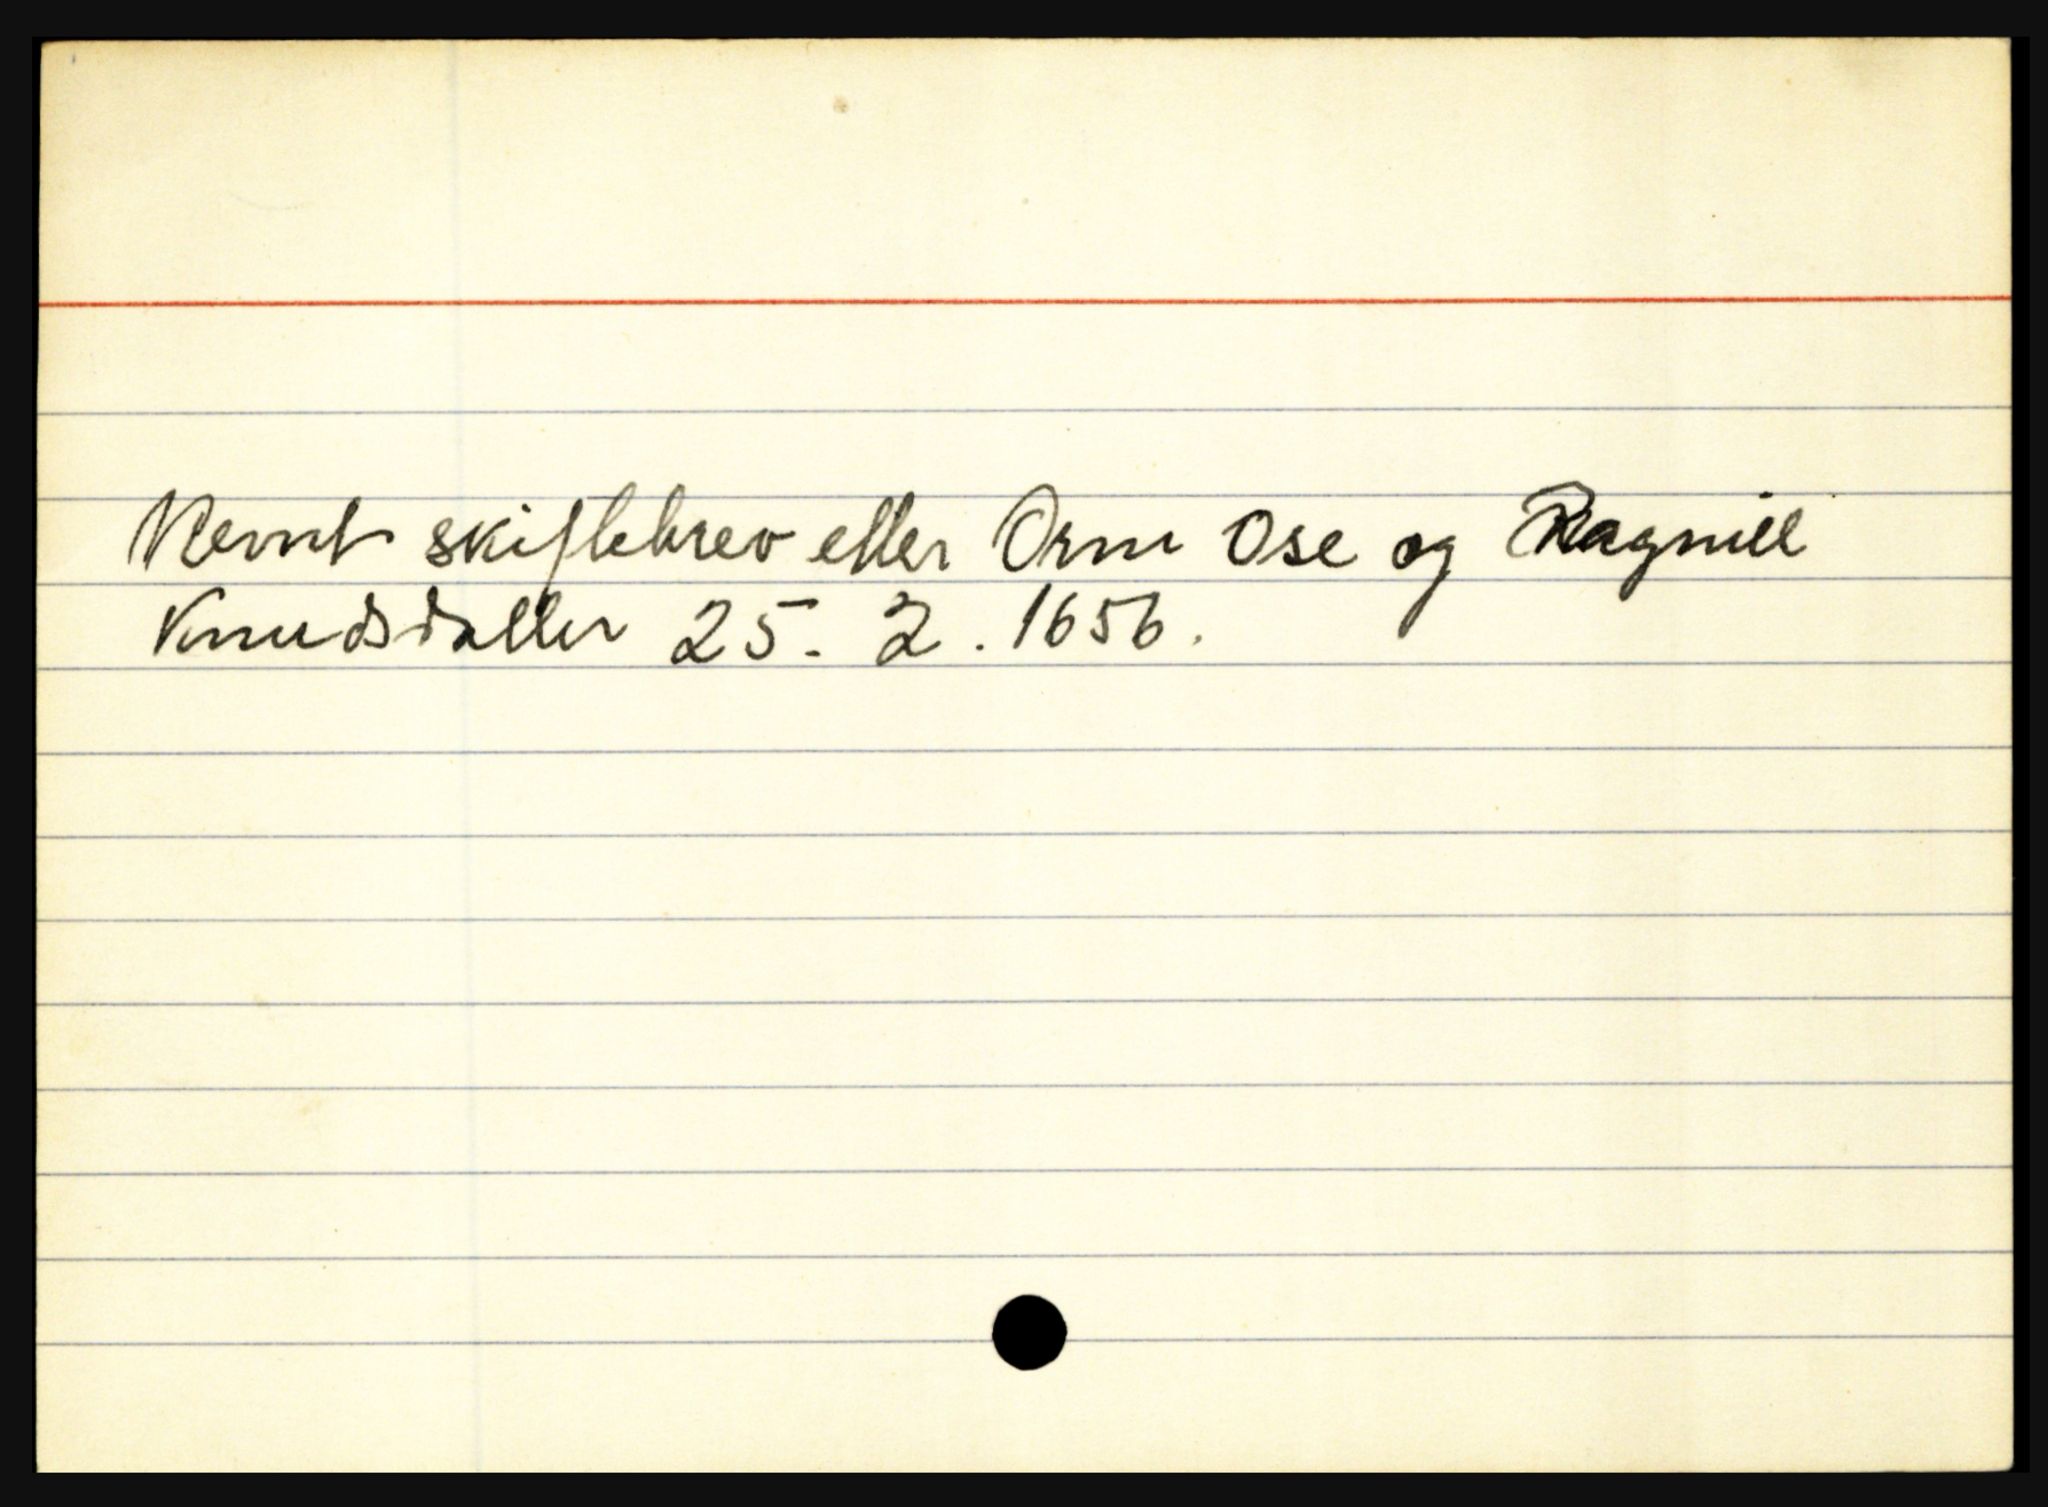 Nevnt skiftebrev etter Orm Ose og Ragnill
Knudsdatter 25. 2. 1656.